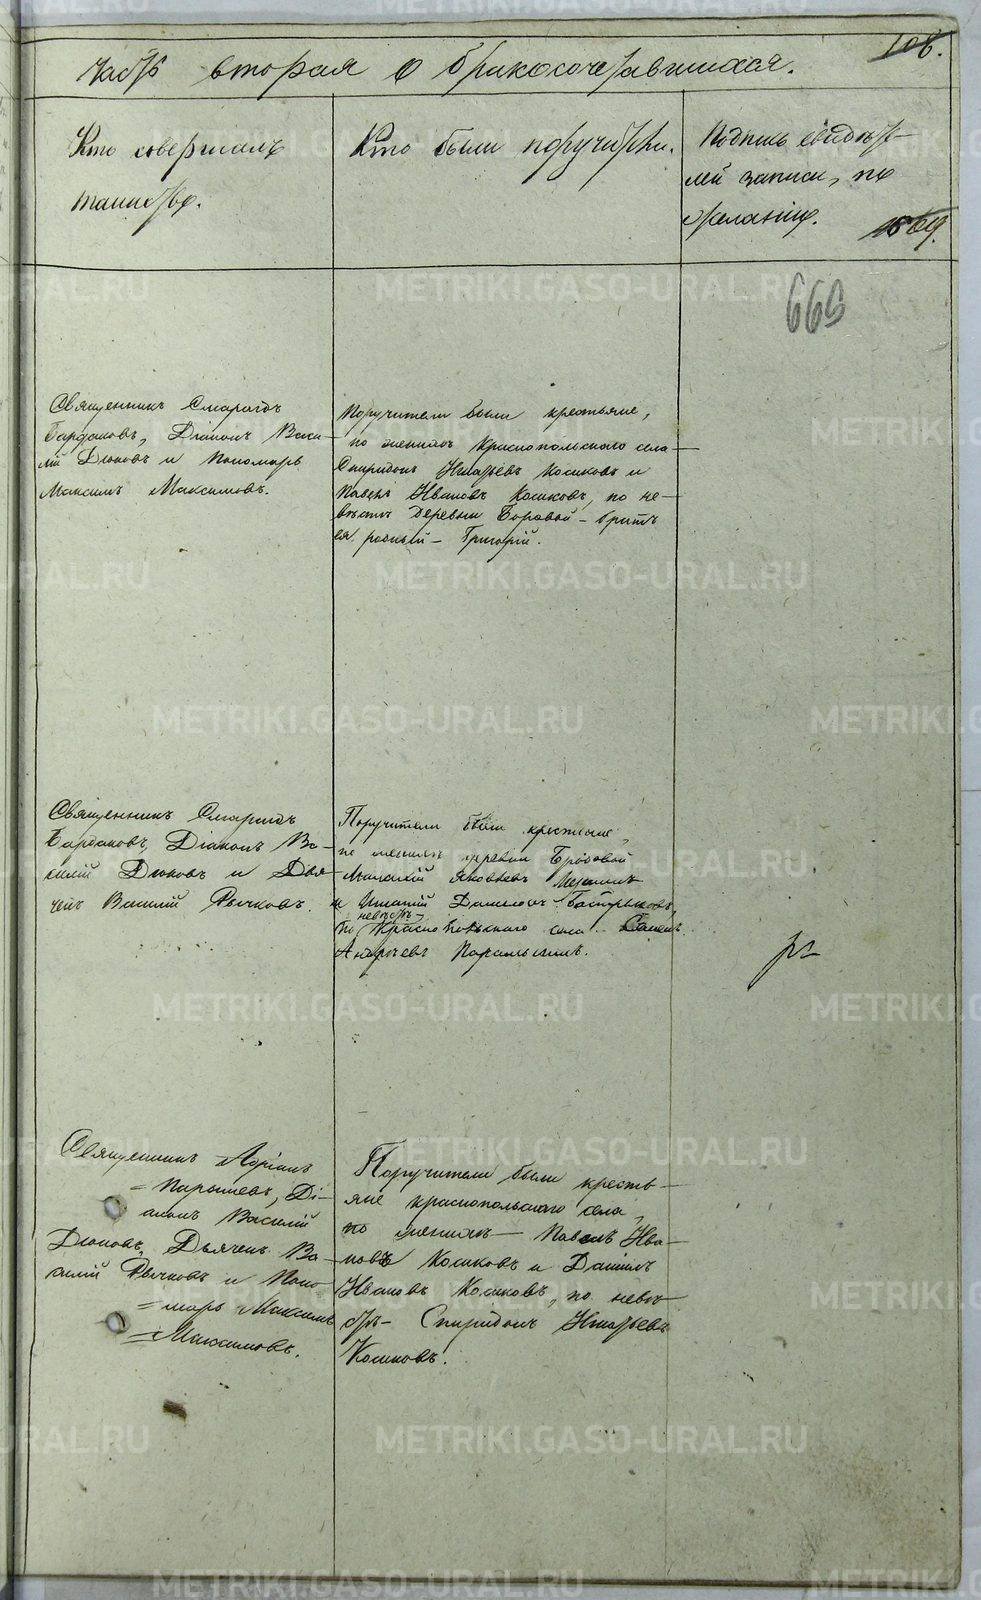 108.
Часть вторая о бракосочетавшихся.
Кто совершалъ
таинство.
Кто были поручители.
Подпись свидѣте-
лей записи, по
желанію.
669
Священникъ Смарагдъ
Бардаковъ, Діаконъ Васи-
лій Дюковъ и Пономарь
Максимъ Максимовъ.
Поручители были крестьяне,
по женихѣ Краснопольскаго села-
Спиридонъ Игнатьевъ Косиковъ и
Павелъ Ивановъ Косиковъ, по не-
вѣстѣ деревни Боровой - братъ
ея родный - Григорій.
Священникъ Смарагдъ
Бардаковъ, Діаконъ Ва-
силій Дюковъ и Дья-
чекъ Василій Рычковъ.
Поручители были крестьяне,
по женихѣ деревни Бродовой
Яковлевъ
и Игнатій Даниловъ
невѣстѣ-
по Краснопольскаго села
Андреевъ
Священникъ Адріанъ
Парышевъ, Ді-
аконъ Василій
Дюковъ, Дьячекъ Ва-
силій Рычковъ и Поно-
марь Максимъ
Максимовъ.
Поручители были кресть-
яне Краснопольскаго села,
по женихѣ - Павелъ Ива-
новъ Косиковъ и Даніилъ
Ивановъ Косиковъ, по невѣ-
стѣ - Спиридонъ Игнатьевъ
Косиковъ.
METRIKI.GASO-URAL.RU